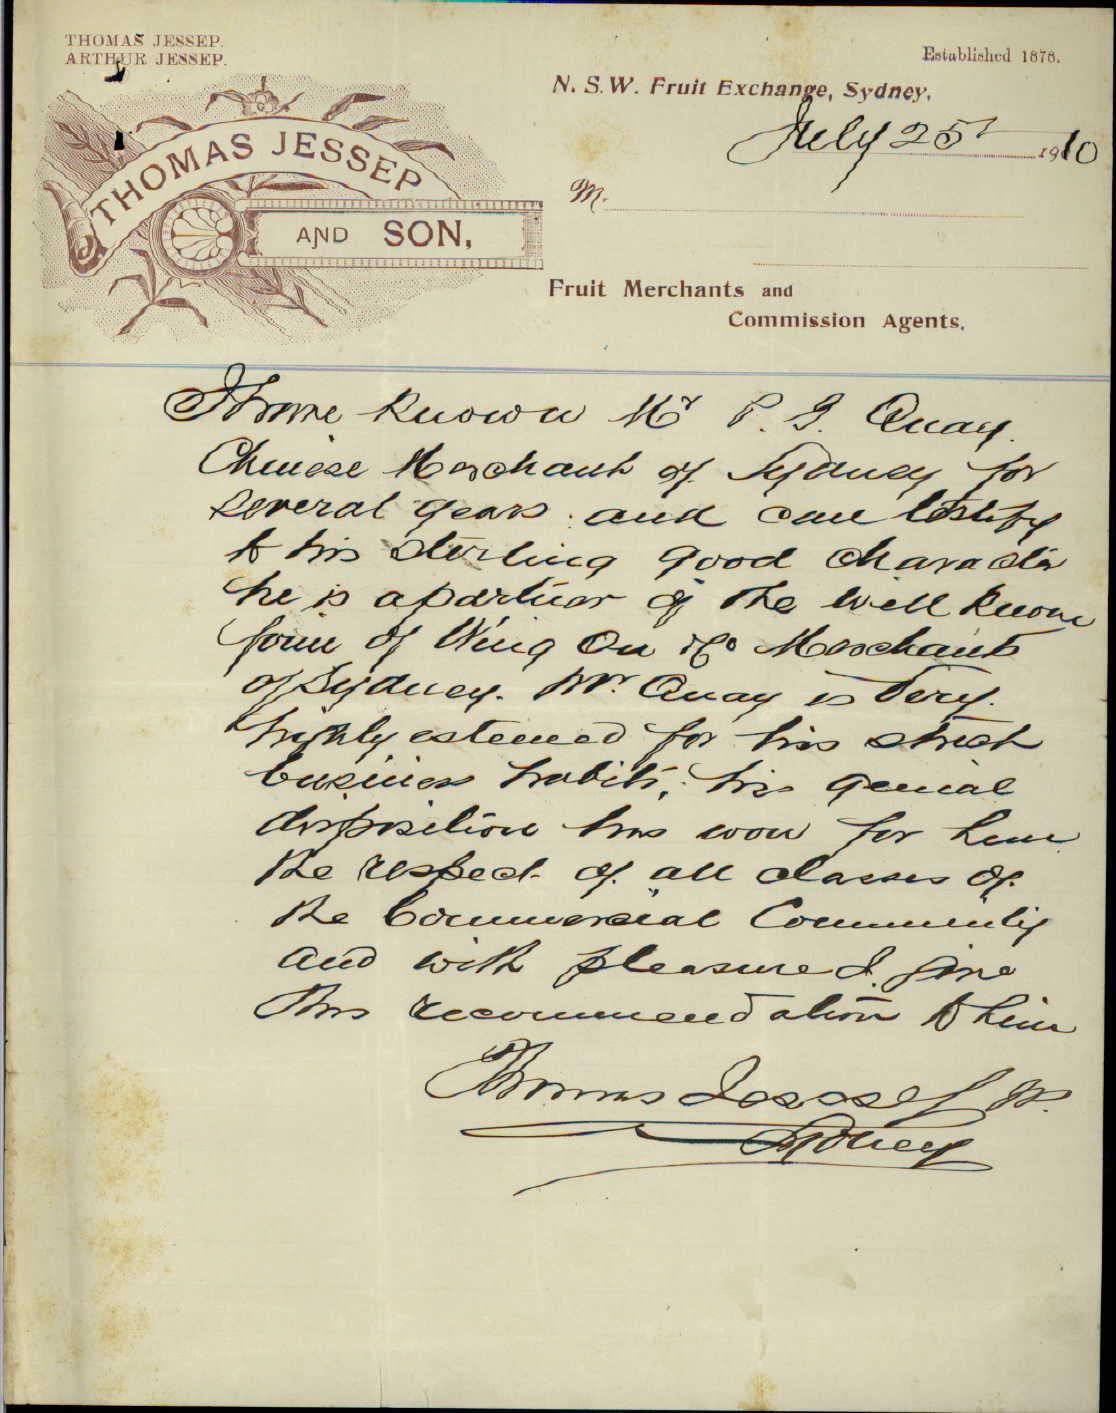 THOMAS JESSEP.
ARTHUR JESSEP.
Established 1878.
N. S. W. Fruit Exchange, Sydney,
July 25 1910
THOMAS JESSEP
AND SON,
M.
Fruit Merchants and
Commission Agents.
I have known Mr P. J. Quay.
Chinese Merchant of Sydney for
several years and can testify
to his sterling good character
he is a partner of the well known
firm of Wing On & Co Merchants
of Sydney. Mr. Quay is very
highly esteemed for his strict
business habits, his genial
disposition has won for him
the respect of all classes of
the Commercial Community
and with pleasure I give
this recommendation to him
Thomas Jessep
Sydney